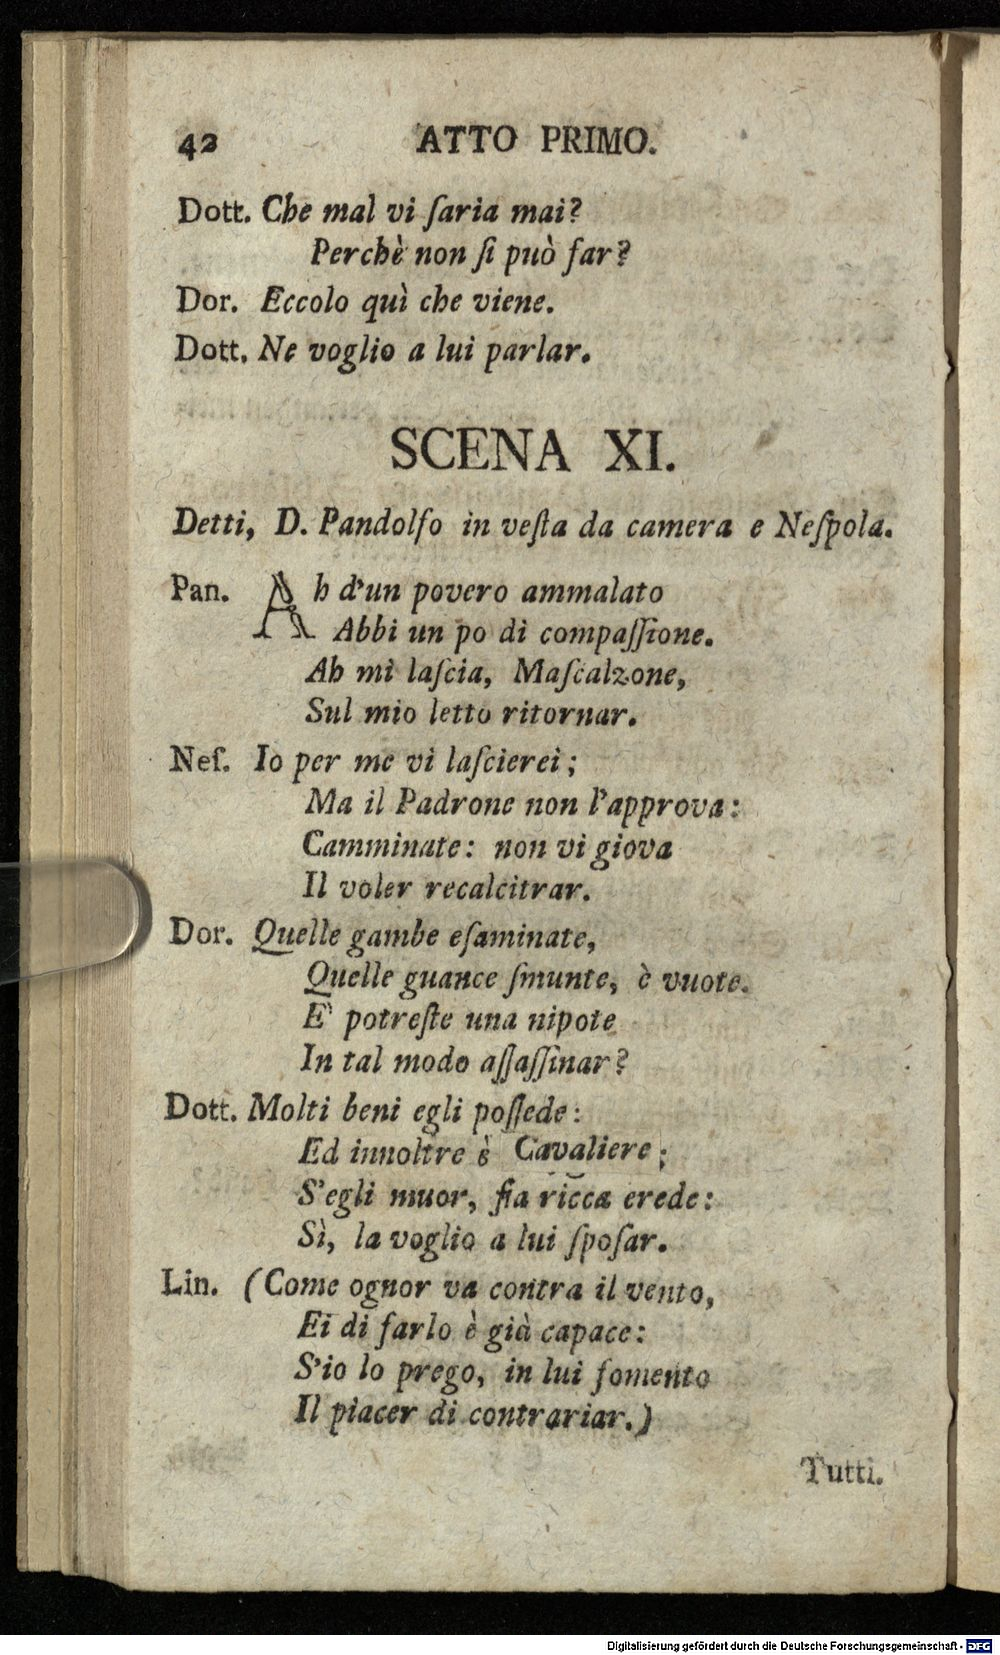 42 ATTO PRIMO.
Dott. Che mal vi ſaria mai?
Perchè non ſi può far?
Dor. Eccolo quì che viene.
Dott. Ne voglio a lui parlar.
SCENA XI.
Detti, D. Pandolfo in veſta da camera e Neſpola.
Pan. Ah d'un povero ammalato
Abbi un po di compaſſione.
Ah mi laſcia, Maſcalzone,
Sul mio letto ritornar.
Neſ. Io per me vi laſcierei;
Ma il Padrone non l'approva:
Camminate: non vi giova
Il voler recalcitrar.
Dor. Quelle gambe eſaminate,
Quelle guance ſmunte, è vuote.
E' potreſte una nipote
In tal modo aſſaſſinar?
Dott. Molti beni egli poſſede:
Ed innoltre è Cavaliere;
S'egli muor, fia ricca erede:
Sì, la voglio a lui ſpoſar.
Lin. (Come ognor va contra il vento,
Ei di farlo è già capace:
S'io lo prego, in lui fomento
Il piacer di contrariar.)
Tutti.
Digitalisierung gefördert durch die Deutsche Forschungsgemeinschaft - DFG